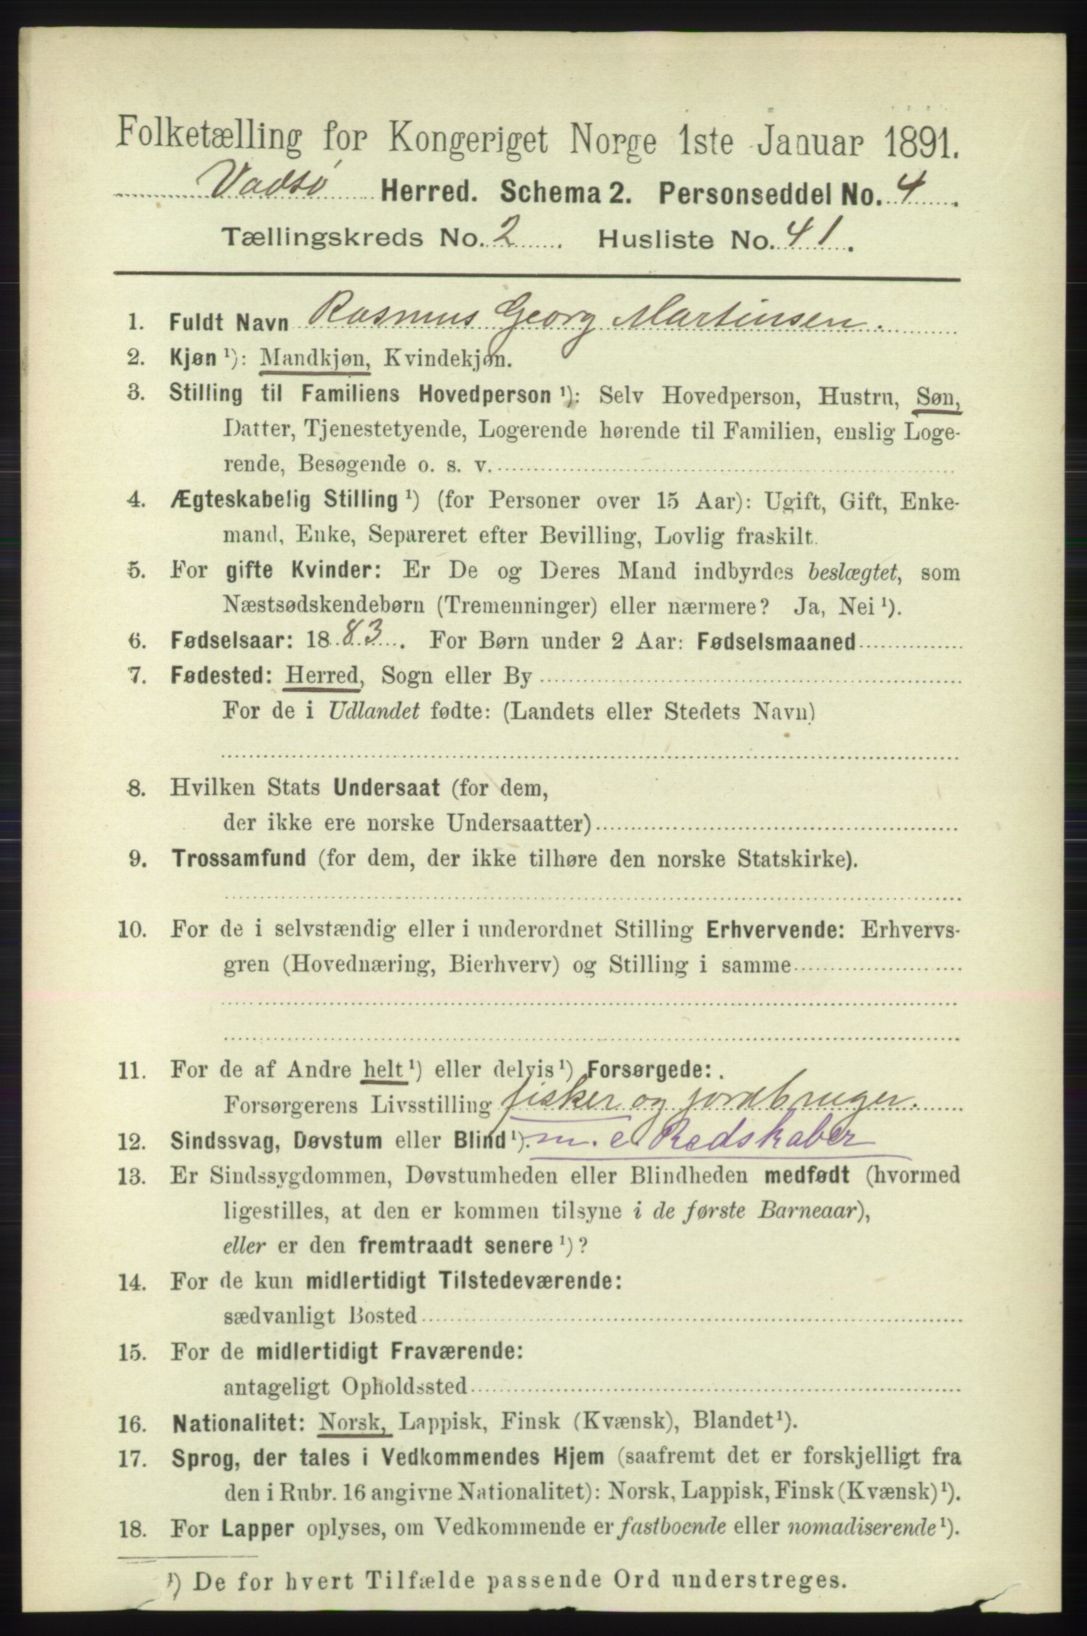 Folketælling for Kongeriget Norge 1ste Januar 1891.
Vadsø Herred. Schema 2. Personseddel No. 4.
Tællingskreds No. 2. Husliste No. 41.
1. Fuldt Navn Rasmus Georg Martinsen.
2. Kjøn ¹): Mandkjøn, Kvindekjøn.
3. Stilling til Familiens Hovedperson ¹): Selv Hovedperson, Hustru, Søn,
Datter, Tjenestetyende, Logerende hørende til Familien, enslig Loge-
rende, Besøgende o. s. v.
4. Ægteskabelig Stilling ¹) (for Personer over 15 Aar): Ugift, Gift, Enke-
mand, Enke, Separeret efter Bevilling, Lovlig fraskilt.
5. For gifte Kvinder: Er De og Deres Mand indbyrdes beslægtet, som
Næstsødskendebørn (Tremenninger) eller nærmere? Ja, Nei ¹).
6. Fødselsaar: 1883. For Børn under 2 Aar: Fødselsmaaned
7. Fødested: Herred, Sogn eller By
For de i Udlandet fødte: (Landets eller Stedets Navn)
8. Hvilken Stats Undersaat (for dem,
der ikke ere norske Undersaatter)
9. Trossamfund (for dem, der ikke tilhøre den norske Statskirke).
10. For de i selvstændig eller i underordnet Stilling Erhvervende: Erhvervs-
gren (Hovednæring, Bierhverv) og Stilling i samme
11. For de af Andre helt ¹) eller delvis ¹) Forsørgede:
Forsørgerens Livsstilling fisker og jordbruger.
12. Sindssvag, Døvstum eller Blind ¹). m. e Redskaber
13. Er Sindssygdommen, Døvstumheden eller Blindheden medfødt (hvormed
ligestilles, at den er kommen tilsyne i de første Barneaar),
eller er den fremtraadt senere ¹)?
14. For de kun midlertidigt Tilstedeværende:
sædvanligt Bosted
15. For de midlertidigt Fraværende:
antageligt Opholdssted
16. Nationalitet: Norsk, Lappisk, Finsk (Kvænsk), Blandet ¹).
17. Sprog, der tales i Vedkommendes Hjem (saafremt det er forskjelligt fra
den i Rubr. 16 angivne Nationalitet): Norsk, Lappisk, Finsk (Kvænsk) ¹).
18. For Lapper oplyses, om Vedkommende er fastboende eller nomadiserende ¹).
¹) De for hvert Tilfælde passende Ord understreges.